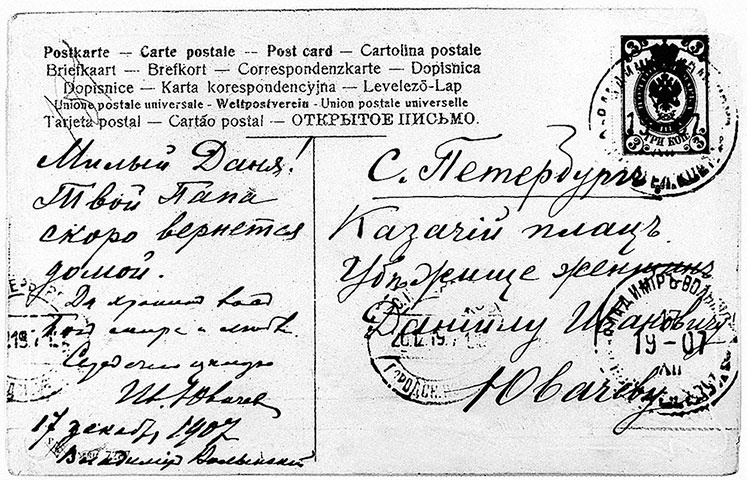 Postkarte — Carte postale — Post card — Cartolina postale
Briefkaart — Brefkort — Correspondenzkarte — Dopisnica
Dopisnice — Karta korespondencyjna — Levelező-Lap
Unione postale universale - Weltpostverein - Union postale universelle
Tarjeta postal — Cartão postal — ОТКРЫТОЕ ПИСЬМО.
3 3
ТРИ КОП.
Милый Даня!
Твой Папа
скоро вернется
домой.
Да хранит васъ
Богъ мира и любви
Ив. Ювачев
17 декаб. 1907
Владимiръ Волынский
С. Петербургъ
Казачiй плацъ.
Убѣжище женщинъ
Данiилу Ивановичу
Ювачеву
ВЛАДИМIРЪ-ВОЛЫН
19-07
XII
ГОРОДСК